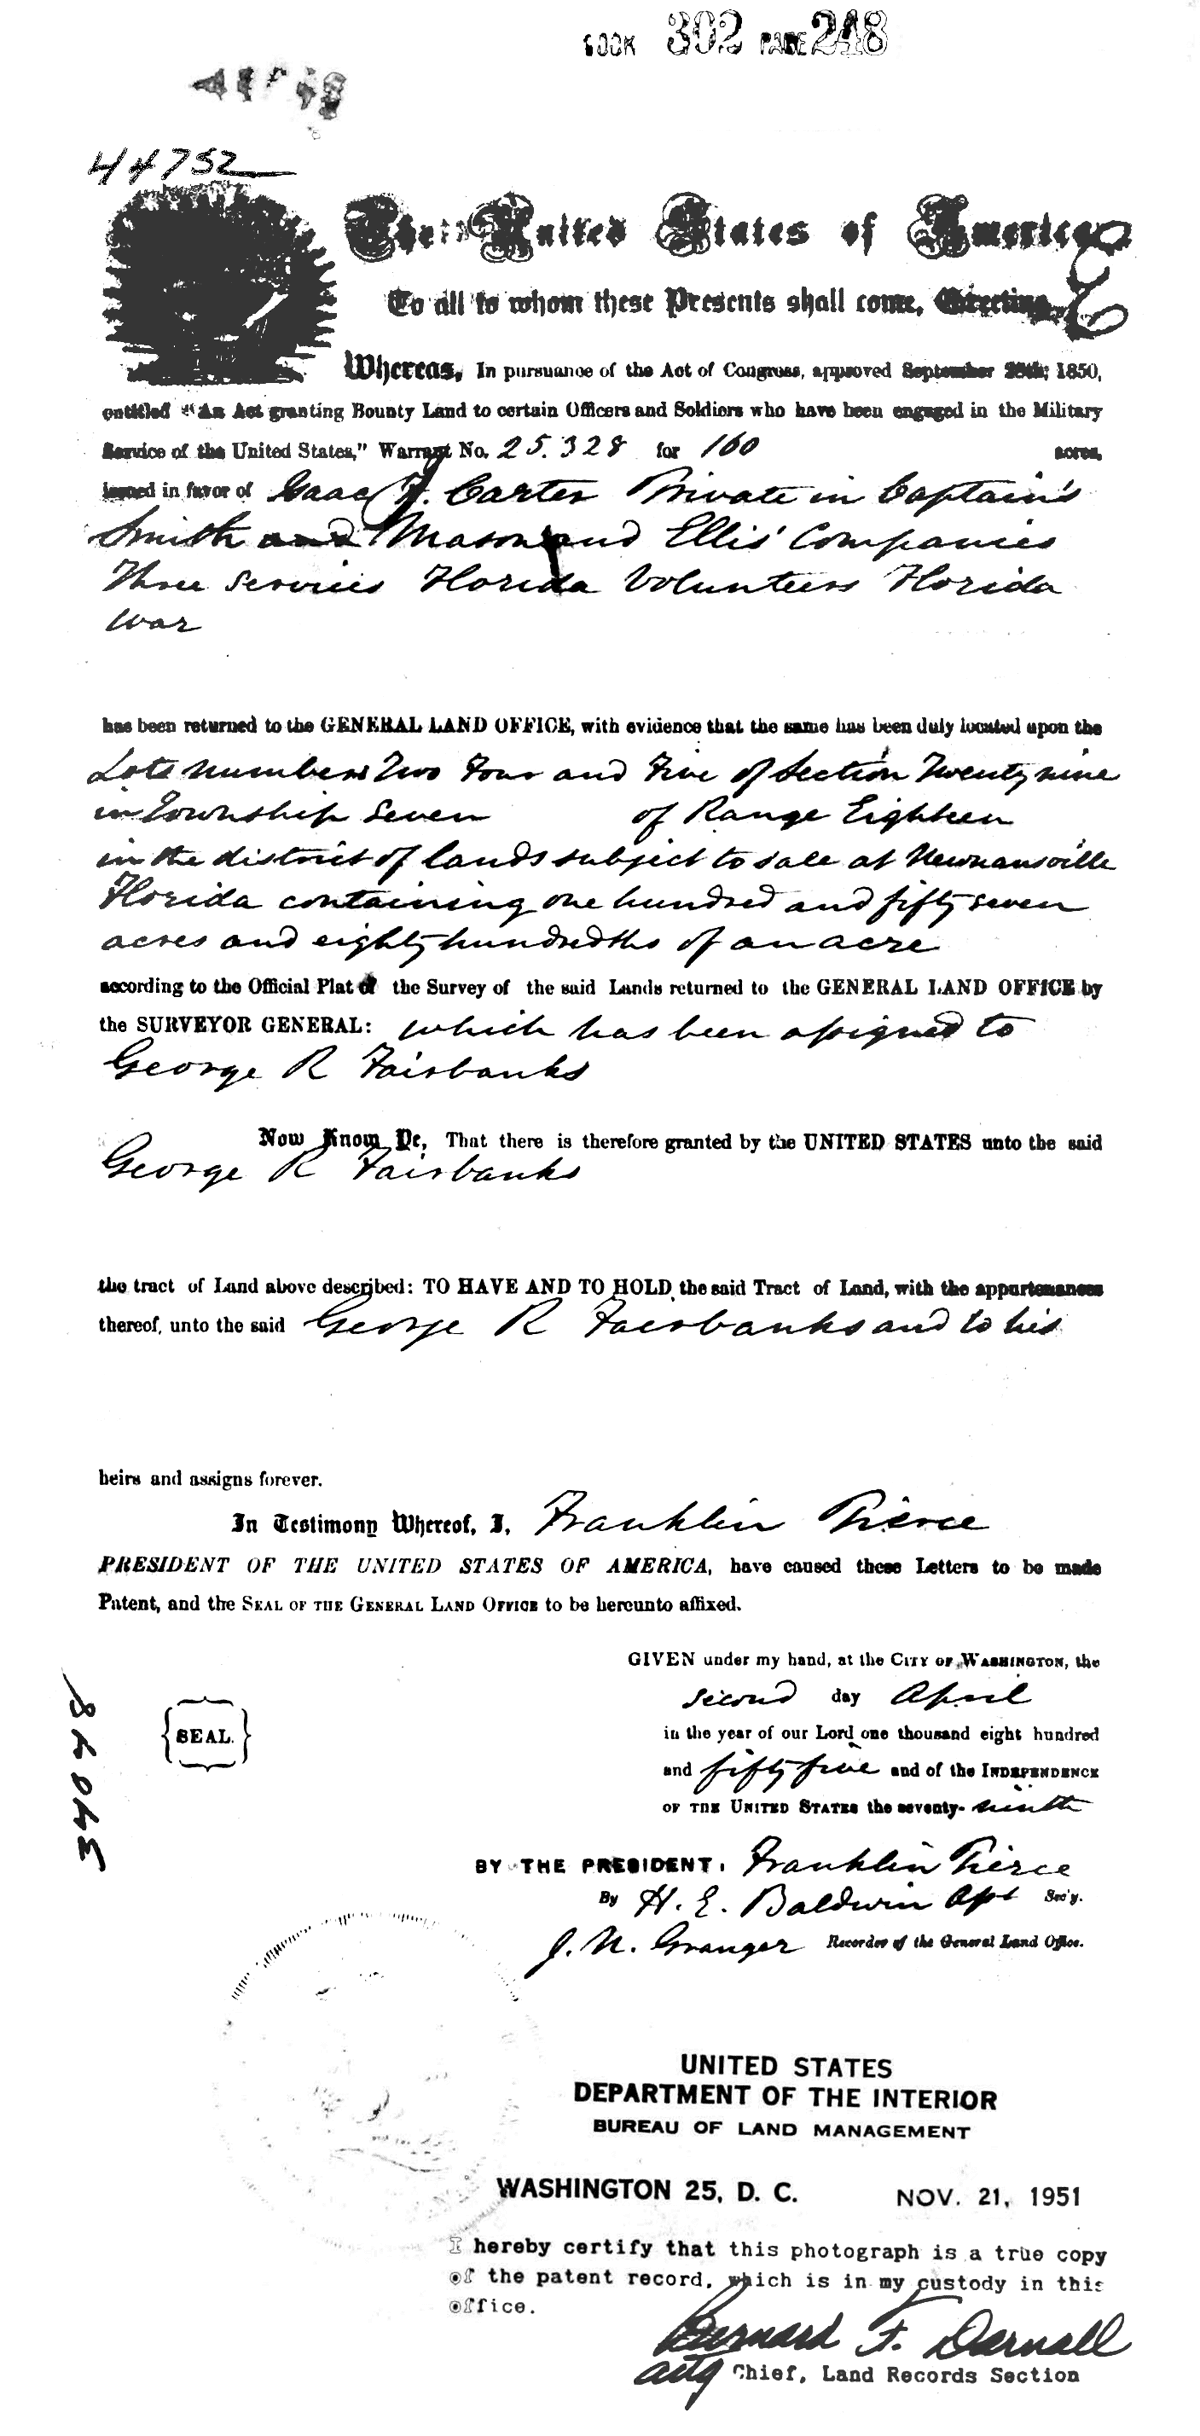 BOOK 302 PAGE 248
44752
The United States of America
To all to whom these Presents shall come, Greeting
Whereas, In pursuance of the Act of Congress, approved September 28th, 1850,
entitled "An Act granting Bounty Land to certain Officers and Soldiers who have been engaged in the Military
Service of the United States," Warrant No. 25.328 for 160 acres,
issued in favor of Isaac F. Carter Private in Captain's
Smith and Mason and Ellis' Companies
Three Services Florida Volunteers Florida
War
has been returned to the GENERAL LAND OFFICE, with evidence that the same has been duly located upon the
Lots numbers Two Four and Five of Section Twenty nine
in Township Seven of Range Eighteen
in the district of lands subject to sale at Newnansville
Florida containing one hundred and fifty seven
acres and eighty hundredths of an acre
according to the Official Plat of the Survey of the said Lands returned to the GENERAL LAND OFFICE by
the SURVEYOR GENERAL: which has been assigned to
George R Fairbanks
Now Know Ye, That there is therefore granted by the UNITED STATES unto the said
George R Fairbanks
the tract of Land above described: TO HAVE AND TO HOLD the said Tract of Land, with the appurtenances
thereof, unto the said George R Fairbanks and to his
heirs and assigns forever.
In Testimony Whereof, I, Franklin Pierce
PRESIDENT OF THE UNITED STATES OF AMERICA, have caused these Letters to be made
Patent, and the SEAL OF THE GENERAL LAND OFFICE to be hereunto affixed.
GIVEN under my hand, at the CITY OF WASHINGTON, the
second day April
in the year of our Lord one thousand eight hundred
and fifty five and of the INDEPENDENCE
OF THE UNITED STATES the seventy-ninth
SEAL.
BY THE PRESIDENT: Franklin Pierce
By H. E. Baldwin Apt Sec'y.
J. N. Granger Recorder of the General Land Office.
UNITED STATES
DEPARTMENT OF THE INTERIOR
BUREAU OF LAND MANAGEMENT
WASHINGTON 25, D. C. NOV. 21, 1951
I hereby certify that this photograph is a true copy
of the patent record, which is in my custody in this
office.
Bernard F. Darnall
actg Chief, Land Records Section